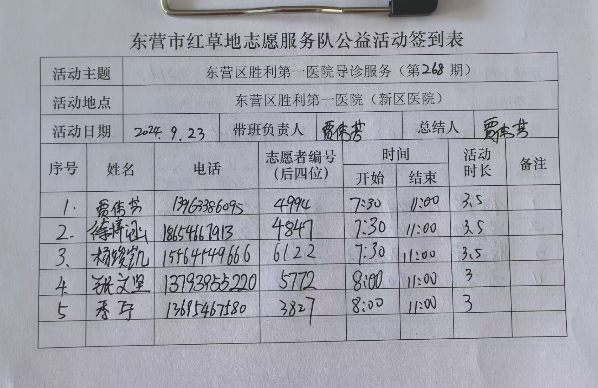 东营市红草地志愿服务队公益活动签到表
活动主题 东营区胜利第一医院导诊服务（第268期）
活动地点 东营区胜利第一医院（新区医院）
活动日期 2024.9.23 带班负责人 贾伟芳 总结人 贾伟芳
序号 姓名 电话 志愿者编号（后四位） 时间 开始 结束 活动时长 备注
1. 贾伟芳 13963386095 4994 7:30 11:00 3.5
2. 18654667913 4847 7:30 11:00 3.5
3. 杨俊凯 15464449666 6122 7:30 11:00 3.5
4 张文坚 13793955220 5772 8:00 11:00 3
5 13695467580 3827 8:00 11:00 3